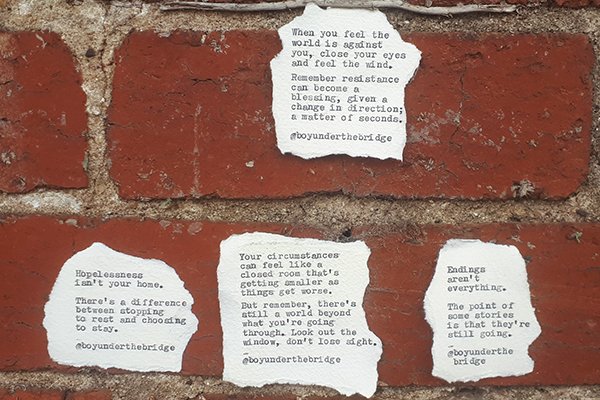 When you feel the
world is against
you, close your eyes
and feel the wind.
Remember resistance
can become a
blessing, given a
change in direction;
a matter of seconds.
@boyunderthebridge
Hopelessness
isn't your home.
There's a difference
between stopping
to rest and choosing
to stay.
@boyunderthebridge
Your circumstances
can feel like a
closed room that's
getting smaller as
things get worse.
But remember, there's
still a world beyond
what you're going
through. Look out the
window, don't lose sight.
–
@boyunderthebridge
Endings
aren't
everything.
The point of
some stories
is that they're
still going.
–
@boyunderthe
bridge